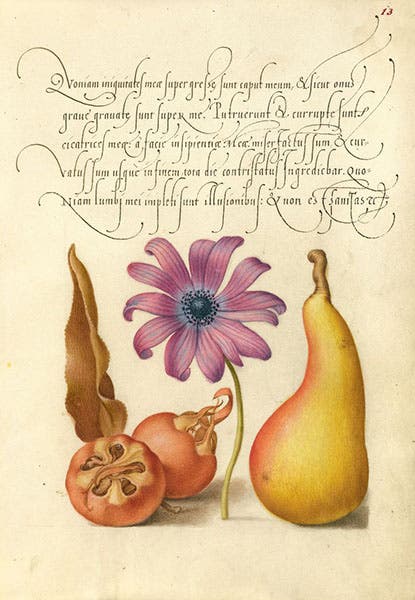 13
Quoniam iniquitates meæ supergressę sunt caput meum, & sicut onus
graue grauatę sunt super me. Putruerunt & corruptę sunt
cicatrices meę à facie insipientię meę. Miser factus sum, & cur-
uatus sum usque in finem, tota die contristatus ingrediebar. Quo-
niam lumbi mei impleti sunt illusionibus: & non est sanitas &c